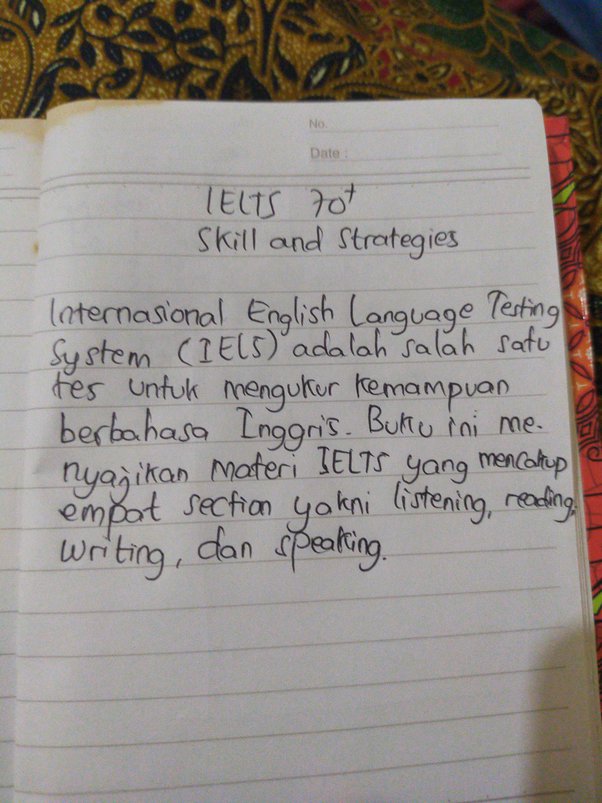 No.
Date :
IELTS 70+
Skill and Strategies
Internasional English Language Testing
System (IELS) adalah salah satu
tes untuk mengukur kemampuan
berbahasa Inggris. Buku ini me-
nyajikan materi IELTS yang mencakup
empat section yakni listening, reading,
writing, dan speaking.